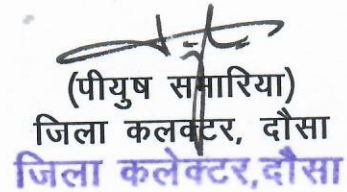 (पीयुष समारिया)
जिला कलक्टर, दौसा
जिला कलेक्टर,दौसा